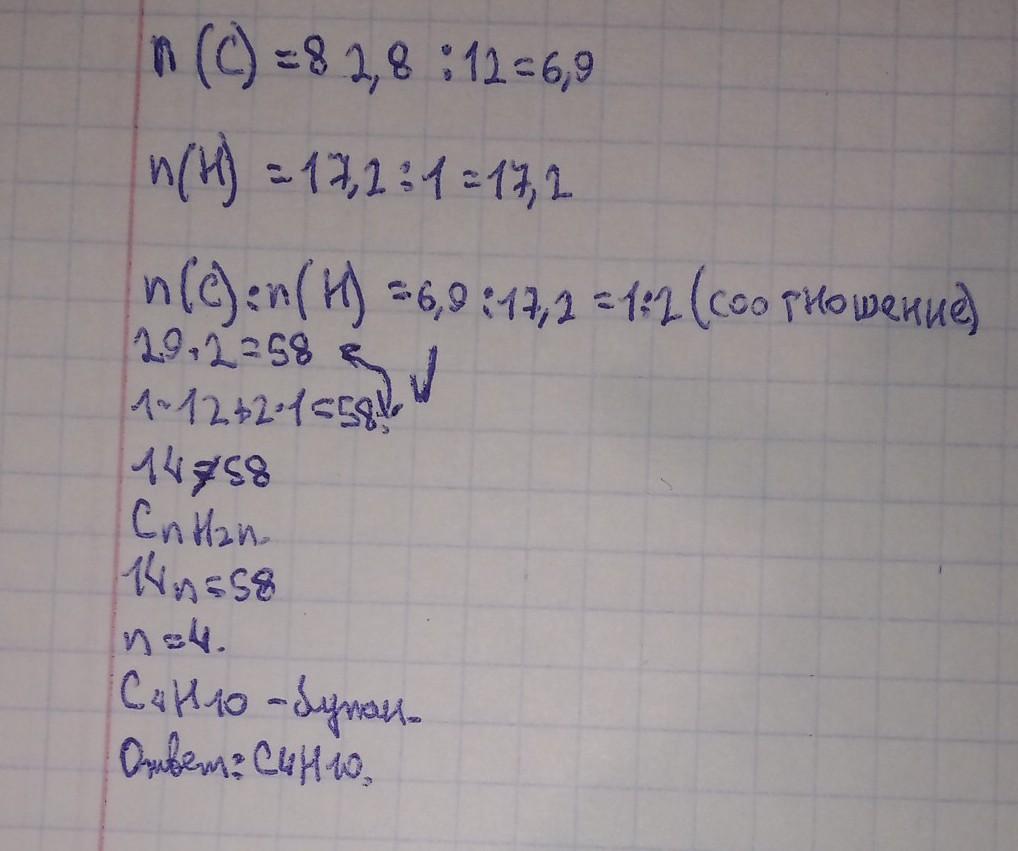 n(C) = 82,8 : 12 = 6,9
n(H) = 17,2 : 1 = 17,2
n(C):n(H) = 6,9 : 17,2 = 1:2 (соотношение)
29·2=58
1·12+2·1=58;
14≠58
CnH2n.
14n=58
n=4.
C4H10 – бутан.
Ответ: C4H10.